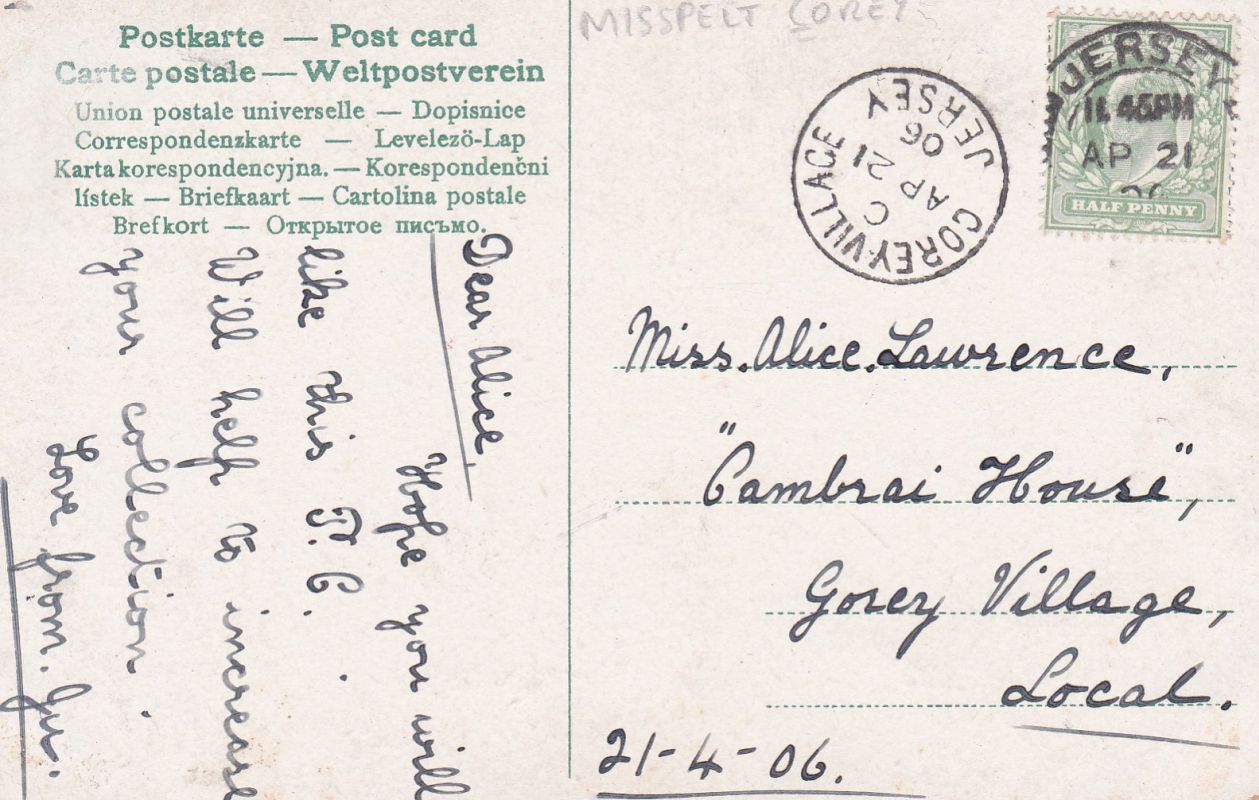 MISSPELT COREY
Postkarte — Post card
Carte postale — Weltpostverein
Union postale universelle — Dopisnice
Correspondenzkarte — Levelező-Lap
Karta korespondencyjna. — Korespondenční
lístek — Briefkaart — Cartolina postale
Brefkort — Открытое письмо.
Dear Alice,
Hope you will
like this P.C.
Will help to increase
your collection.
Love from.
COREY-VILLAGE
JERSEY
C
AP 21
06
JERSEY
11.45PM
AP 21
HALF PENNY
Miss. Alice. Lawrence,
"Cambrai House",
Gorey Village,
Local.
21-4-06.